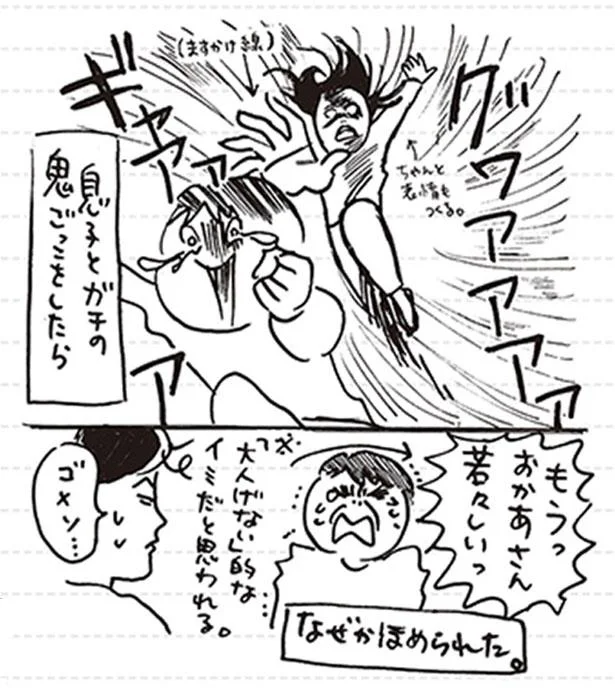 グワァアァアァア
(ますかけ線)
ちゃんと
表情も
つくる。
ギャアアァァ
ア
息子とガチの
鬼ごっこをしたら
もうっ
おかあさん
若々しいっ
なぜかほめられた。
「大人げない」的な…
イミだと思われる。
ゴメン…